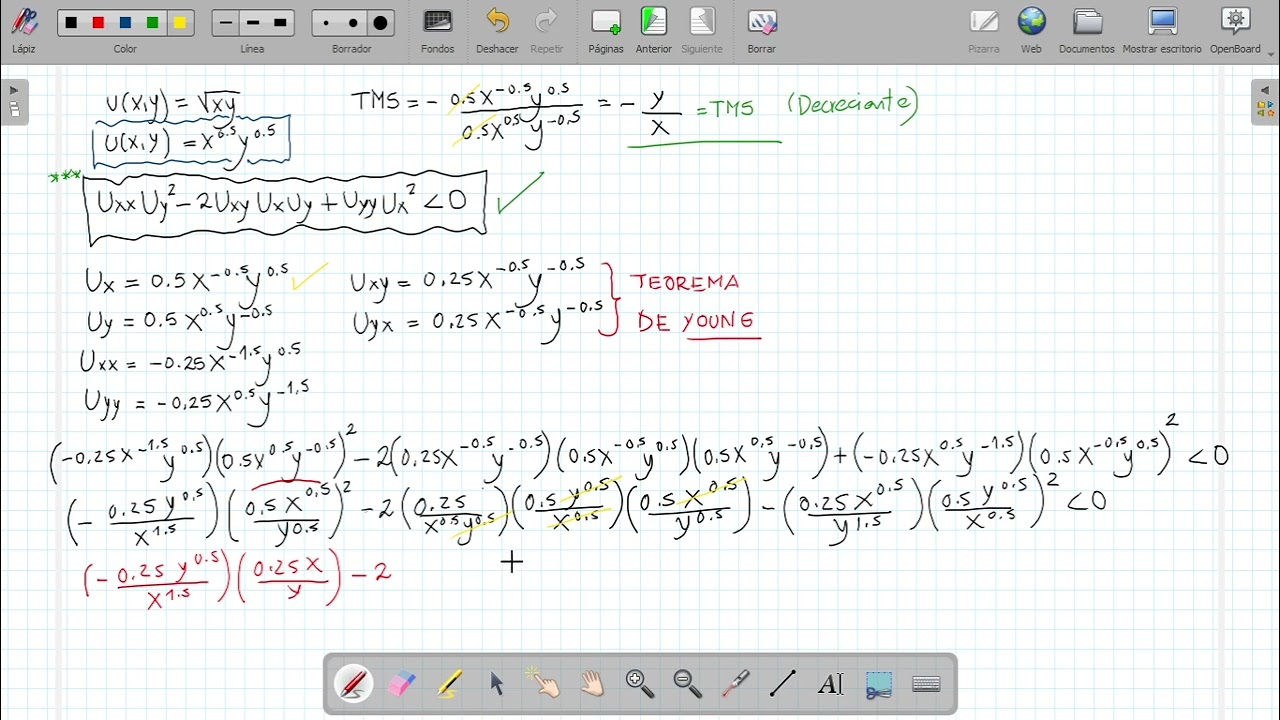 Lápiz Color Línea Borrador Fondos Deshacer Repetir Páginas Anterior Siguiente Borrar Pizarra Web Documentos Mostrar escritorio OpenBoard
U(x,y) = √xy
U(x,y) = x^0.5 y^0.5
TMS = - 0.5x^-0.5 y^0.5 / 0.5x^0.5 y^-0.5 = - y/x = TMS (Decreciante)
***
Uxx Uy² - 2Uxy Ux Uy + Uyy Ux² < 0 ✓
Ux = 0.5x^-0.5 y^0.5 ✓ Uxy = 0.25x^-0.5 y^-0.5 } TEOREMA
Uy = 0.5 x^0.5 y^-0.5 Uyx = 0.25x^-0.5 y^-0.5 DE YOUNG
Uxx = -0.25x^-1.5 y^0.5
Uyy = -0.25x^0.5 y^-1.5
(-0.25x^-1.5 y^0.5)(0.5x^0.5 y^-0.5)² - 2(0.25x^-0.5 y^-0.5)(0.5x^-0.5 y^0.5)(0.5x^0.5 y^-0.5) + (-0.25x^0.5 y^-1.5)(0.5x^-0.5 y^0.5)² < 0
(- 0.25 y^0.5 / x^1.5)(0.5 x^0.5 / y^0.5)² - 2(0.25 / x^0.5 y^0.5)(0.5 y^0.5 / x^0.5)(0.5 x^0.5 / y^0.5) - (0.25 x^0.5 / y^1.5)(0.5 y^0.5 / x^0.5)² < 0
(- 0.25 y^0.5 / x^1.5)(0.25 x / y) - 2
AI